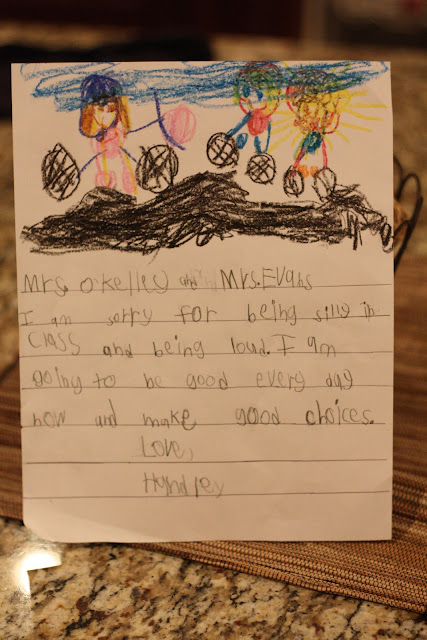 Mrs. O'Kelley and Mrs. Evans
I am sorry for being silly in
Class and being loud. I am
going to be good every day
now and make good choices.
Love,
Hyndley